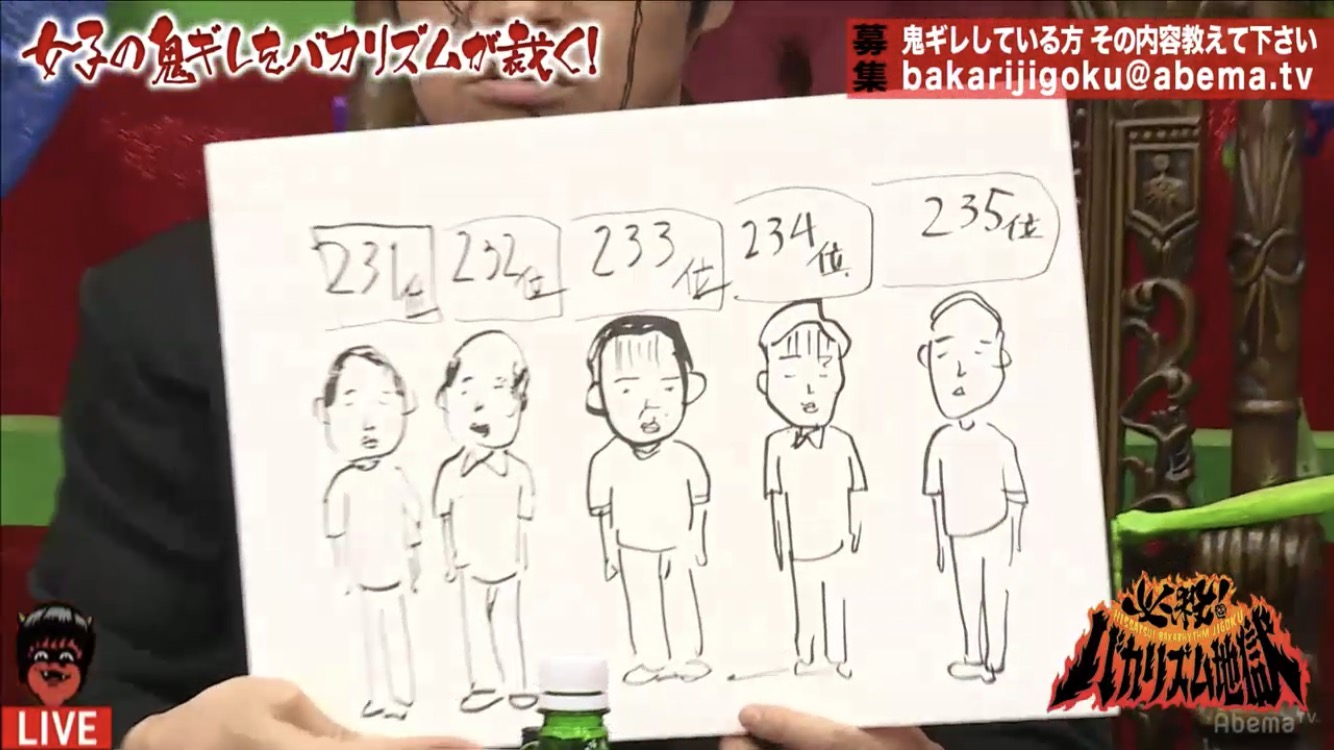 女子の鬼ギレをバカリズムが裁く!
募集
鬼ギレしている方 その内容教えて下さい
bakarijigoku@abema.tv
231位
232位
233位
234位
235位
必殺!
HISSATSU! BAKARHYTHM JIGOKU
バカリズム地獄
LIVE
AbemaTV